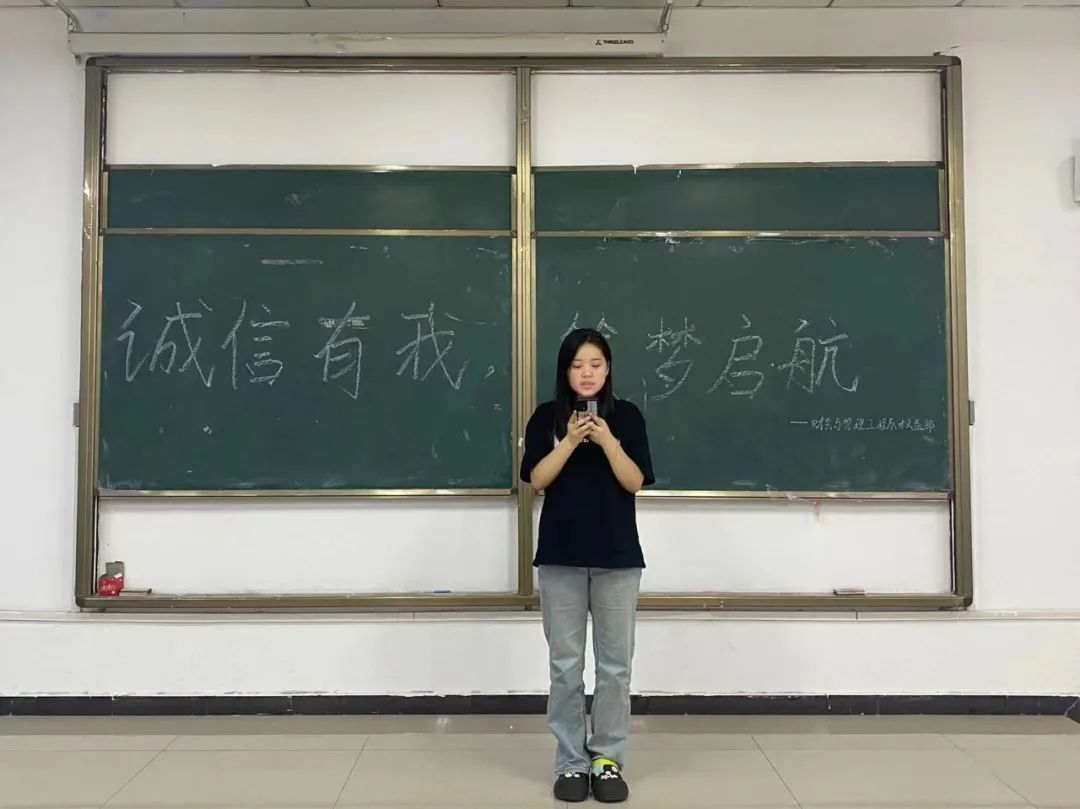 THREELEAVES
诚信有我，
梦启航
——财会与管理工程系权益部